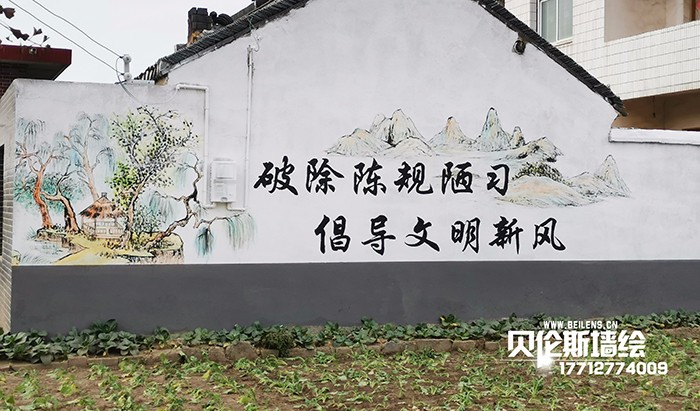 破除陈规陋习
倡导文明新风
WWW.BEILENS.CN
贝伦斯墙绘
17712774009